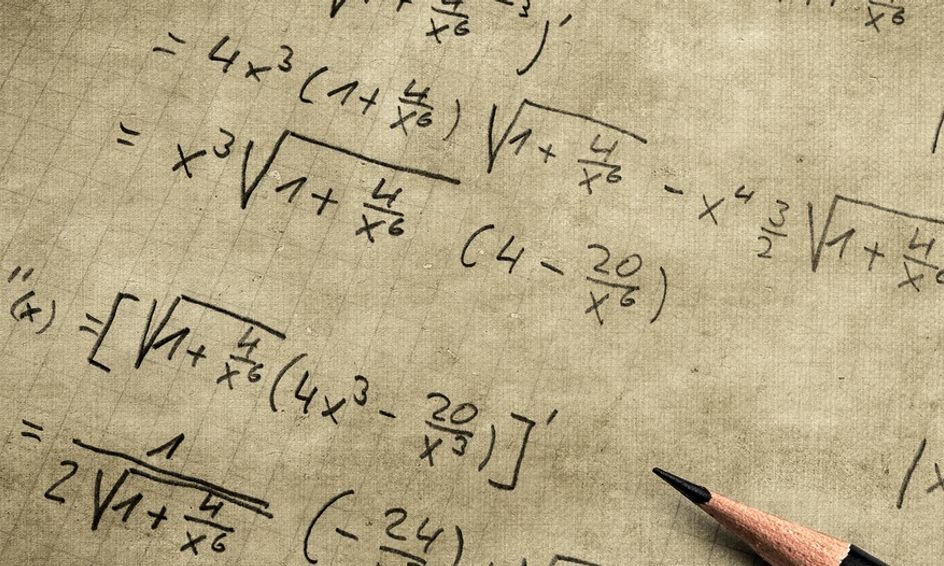 √1+ 4/x⁶ ⁻³ )′
4/x⁶
= 4x³ (1+ 4/x⁶) √(1+ 4/x⁶) - x⁴ 3/2 √(1+ 4/x⁶
= x³ √(1+ 4/x⁶) (4 - 20/x⁶)
″(x) = [√(1+ 4/x⁶) (4x³ - 20/x³)]′
= 1/(2√(1+ 4/x⁶)) (- 24/ )
(x